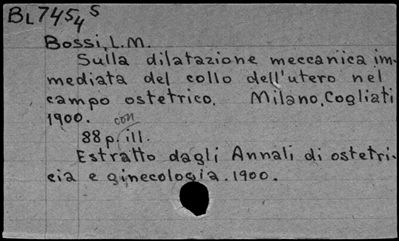 BL7454 S
Bossi, L.M.
Sulla dilatazione meccanica im-
mediata del collo dell'utero nel
campo ostetrico. Milano, Cogliati
1900.
con
88 p. ill.
Estratto dagli Annali di ostetri-
cia e ginecologia. 1900.